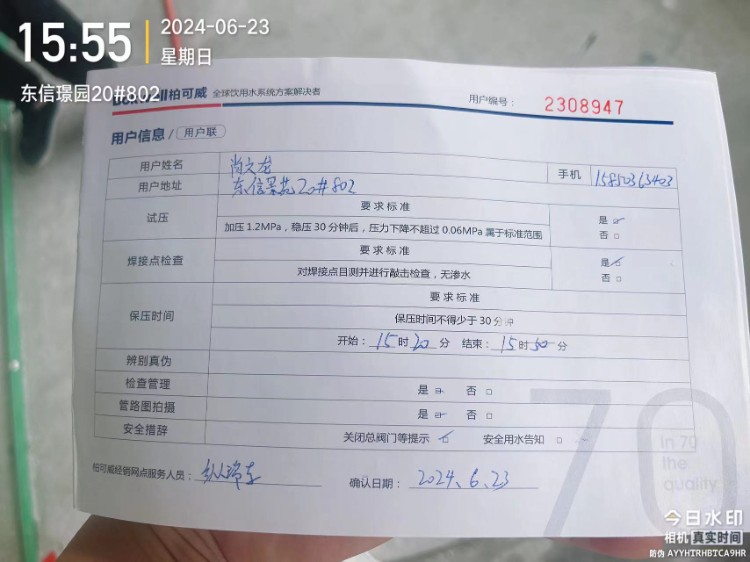 15:55
2024-06-23
星期日
东信璟园20#802
柏可威 全球饮用水系统方案解决者
用户编号: 2308947
用户信息 / 用户联
用户姓名 尚文龙 手机 15850363403
用户地址 东信景苑20#802
试压 要求标准 是
加压1.2MPa，稳压30分钟后，压力下降不超过0.06MPa属于标准范围 否
焊接点检查 要求标准 是
对焊接点目测并进行敲击检查，无渗水 否
保压时间 要求标准
保压时间不得少于30分钟
开始: 15时20分 结束: 15时50分
辨别真伪
检查管理 是 否
管路图拍摄 是 否
安全措辞 关闭总阀门等提示 安全用水告知
柏可威经销网点服务人员:
确认日期: 2024.6.23
70
In 70
the
quality
今日水印
相机 真实时间
防伪 AYYHTRHBTCA9HR